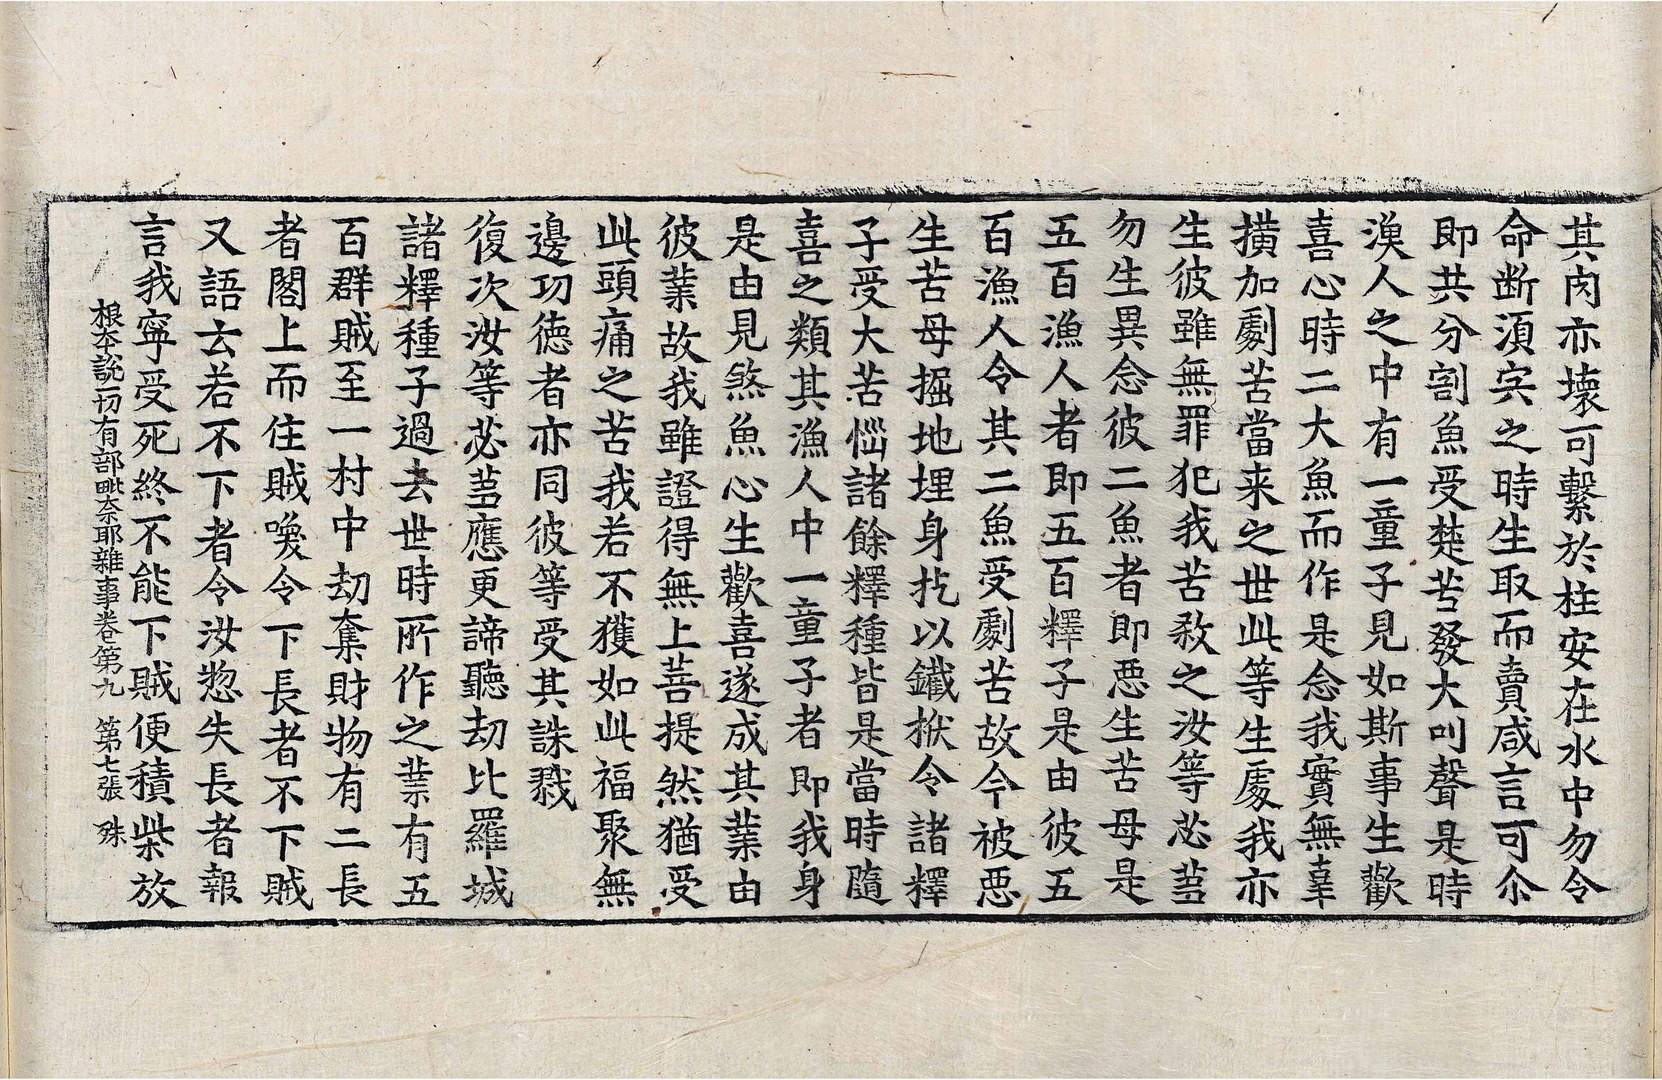 其肉亦壞可繫於柱安在水中勿令
命断湏㝐之時生取而賣咸言可尒
即共分割魚受楚苦發大叫聲是時
漁人之中有一童子見如斯事生歡
喜心時二大魚而作是念我實無辜
横加劇苦當来之世此等生處我亦
生彼雖無罪犯我苦敎之汝等苾蒭
勿生異念彼二魚者即悪生苦母是
五百漁人者即五百釋子是由彼五
百漁人令其二魚受劇苦故今被悪
生苦母掘地埋身扢以鐵杴令諸釋
子受大苦惱諸餘釋種皆是當時隨
喜之類其漁人中一童子者即我身
是由見煞魚心生歡喜遂成其業由
彼業故我雖證得無上菩提然猶受
此頭痛之苦我若不獲如此福聚無
邊功德者亦同彼等受其誅戮
復次汝等苾蒭應更諦聽劫比羅城
諸釋種子過去世時所作之業有五
百群賊至一村中劫奪財物有二長
者閣上而住賊喚令下長者不下賊
又語云若不下者令汝惣失長者報
言我寧受死終不能下賊便積柴放
根本說一切有部毗奈耶雜事卷第九 第七張 殊